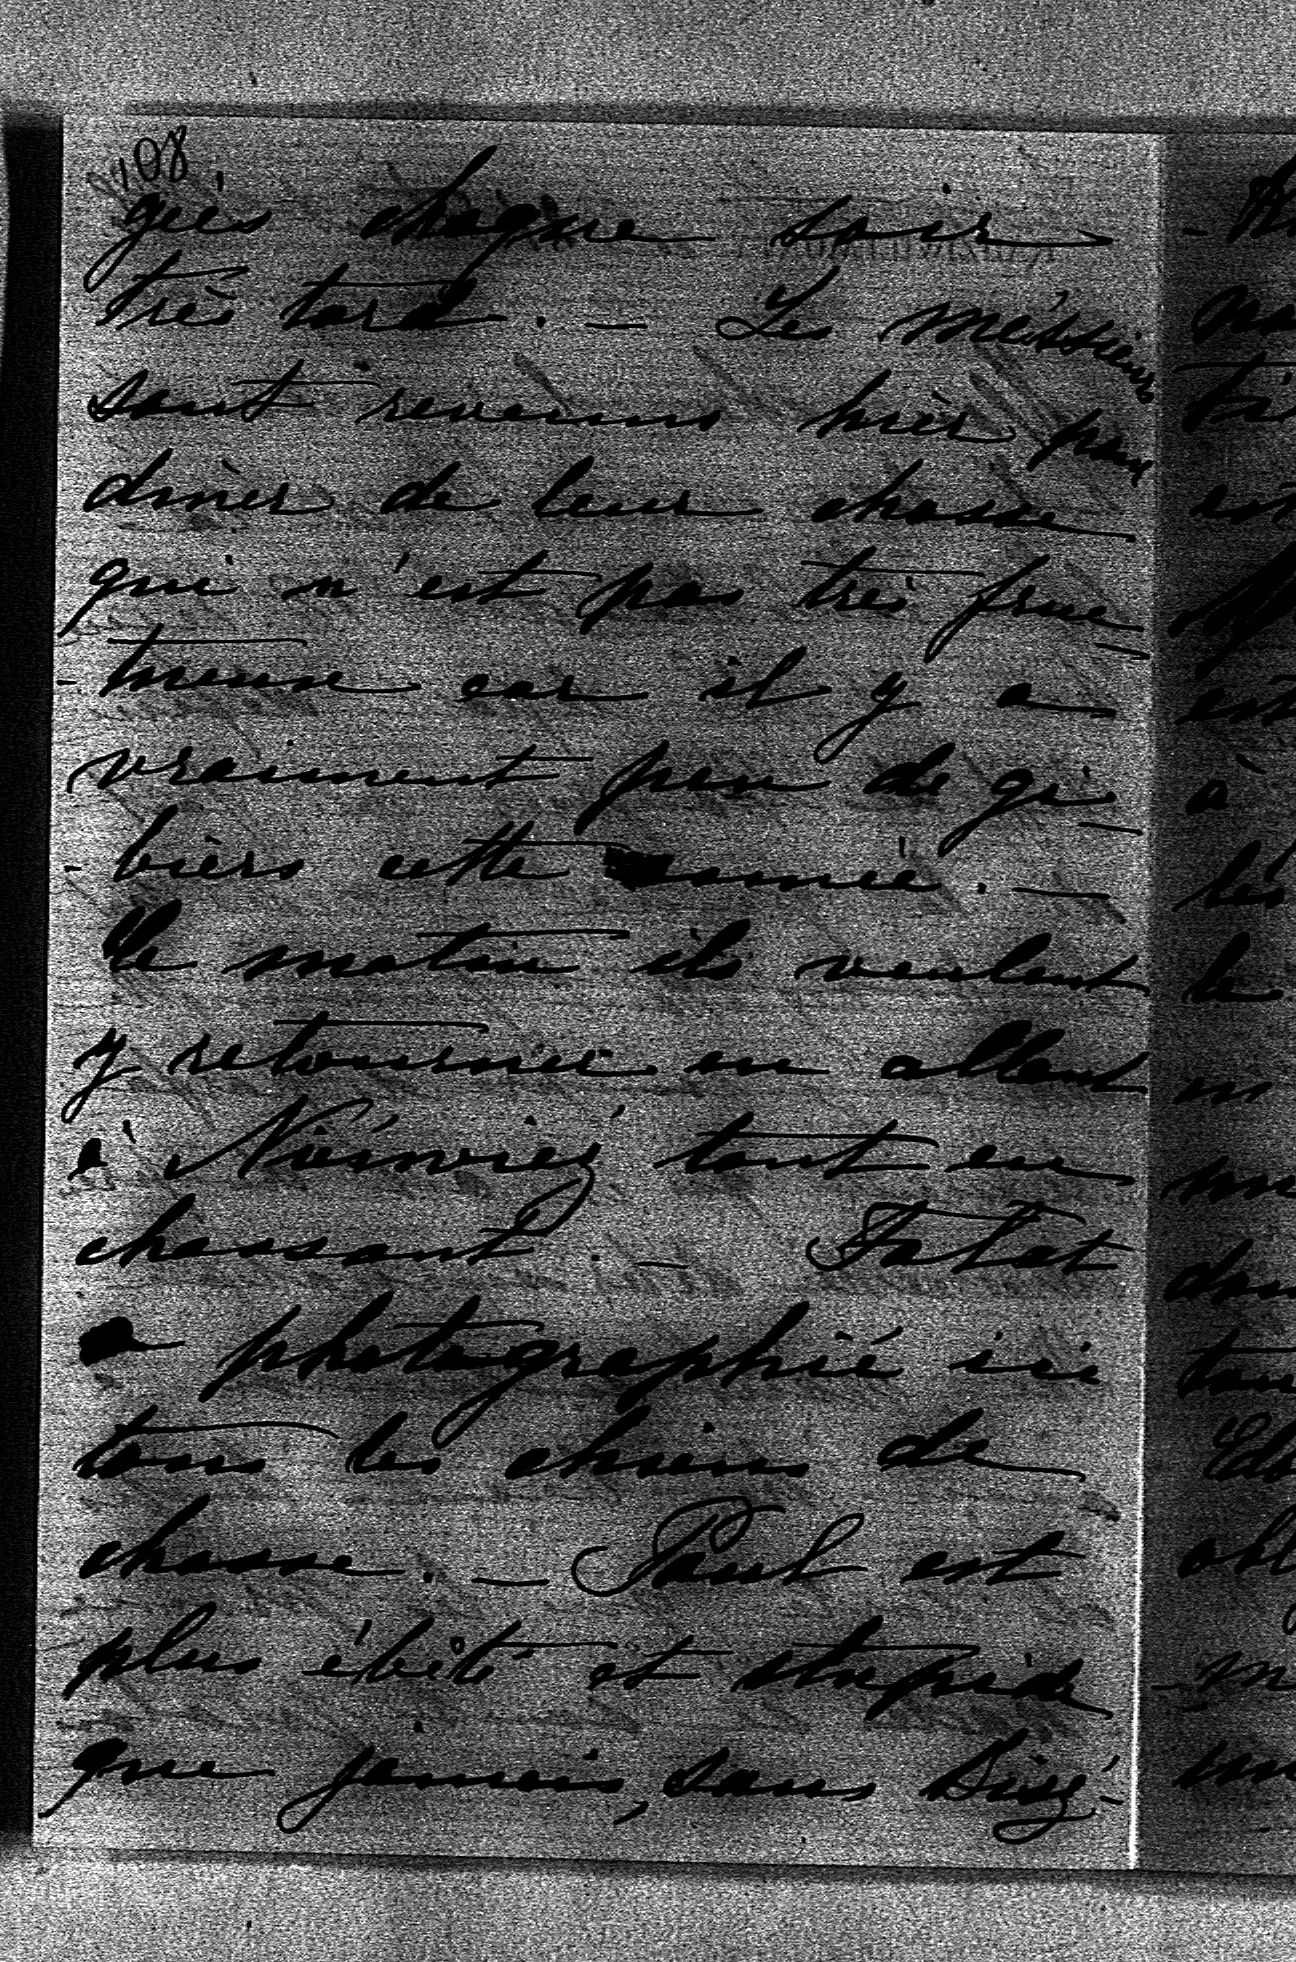 108
gés chaque soir
très tard. — Les messieurs
sont revenus hièr pour
diner de leur chasse
qui n'est pas très fruc-
-tueuse car il y a
vraiment peu de gi-
-biers cette année. —
le matin ils veulent
y retourner en allant
à tout en
chassant. — Tatat
a photographié ici
tous les chiens de
chasse. — Paul est
plus ébété et stupide
que jamais, sans